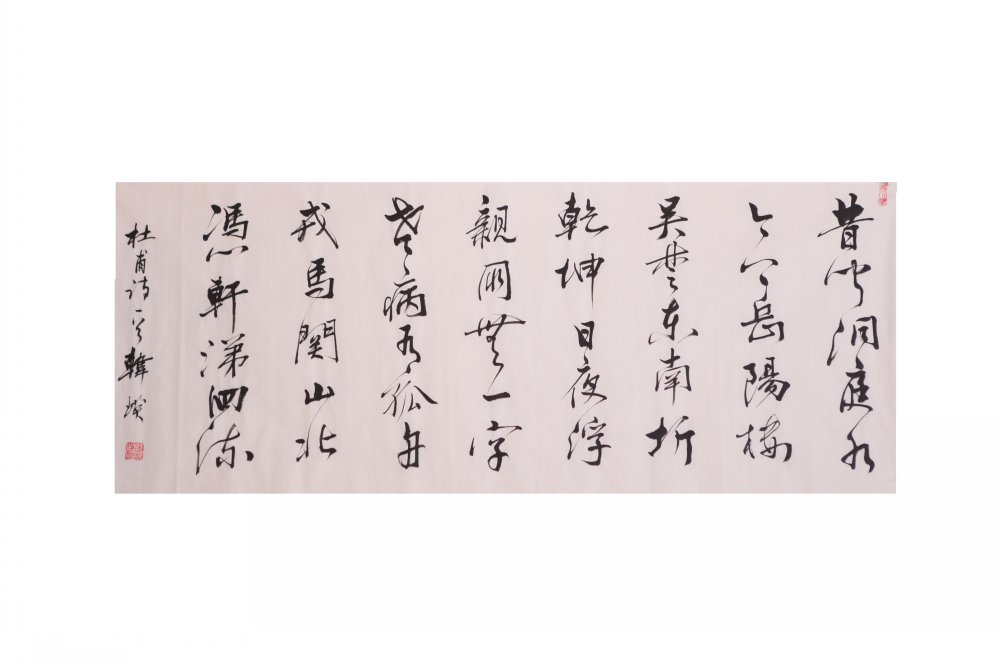 昔闻洞庭水
今上岳陽樓
吴楚东南坼
乾坤日夜浮
親朋無一字
老病有孤舟
戎馬関山北
憑軒涕泗流
杜甫诗一首 韓